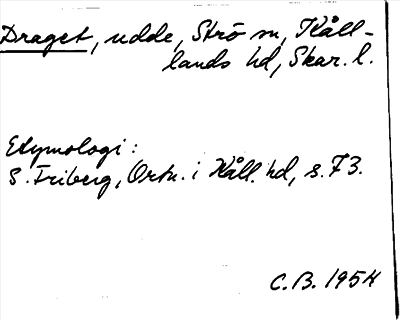 Draget, udde, Strö sn, Kåll-
lands hd, Skar. l.
Etymologi:
S. Friberg, Ortn. i Kåll. hd, s. 73.
C.B. 1954